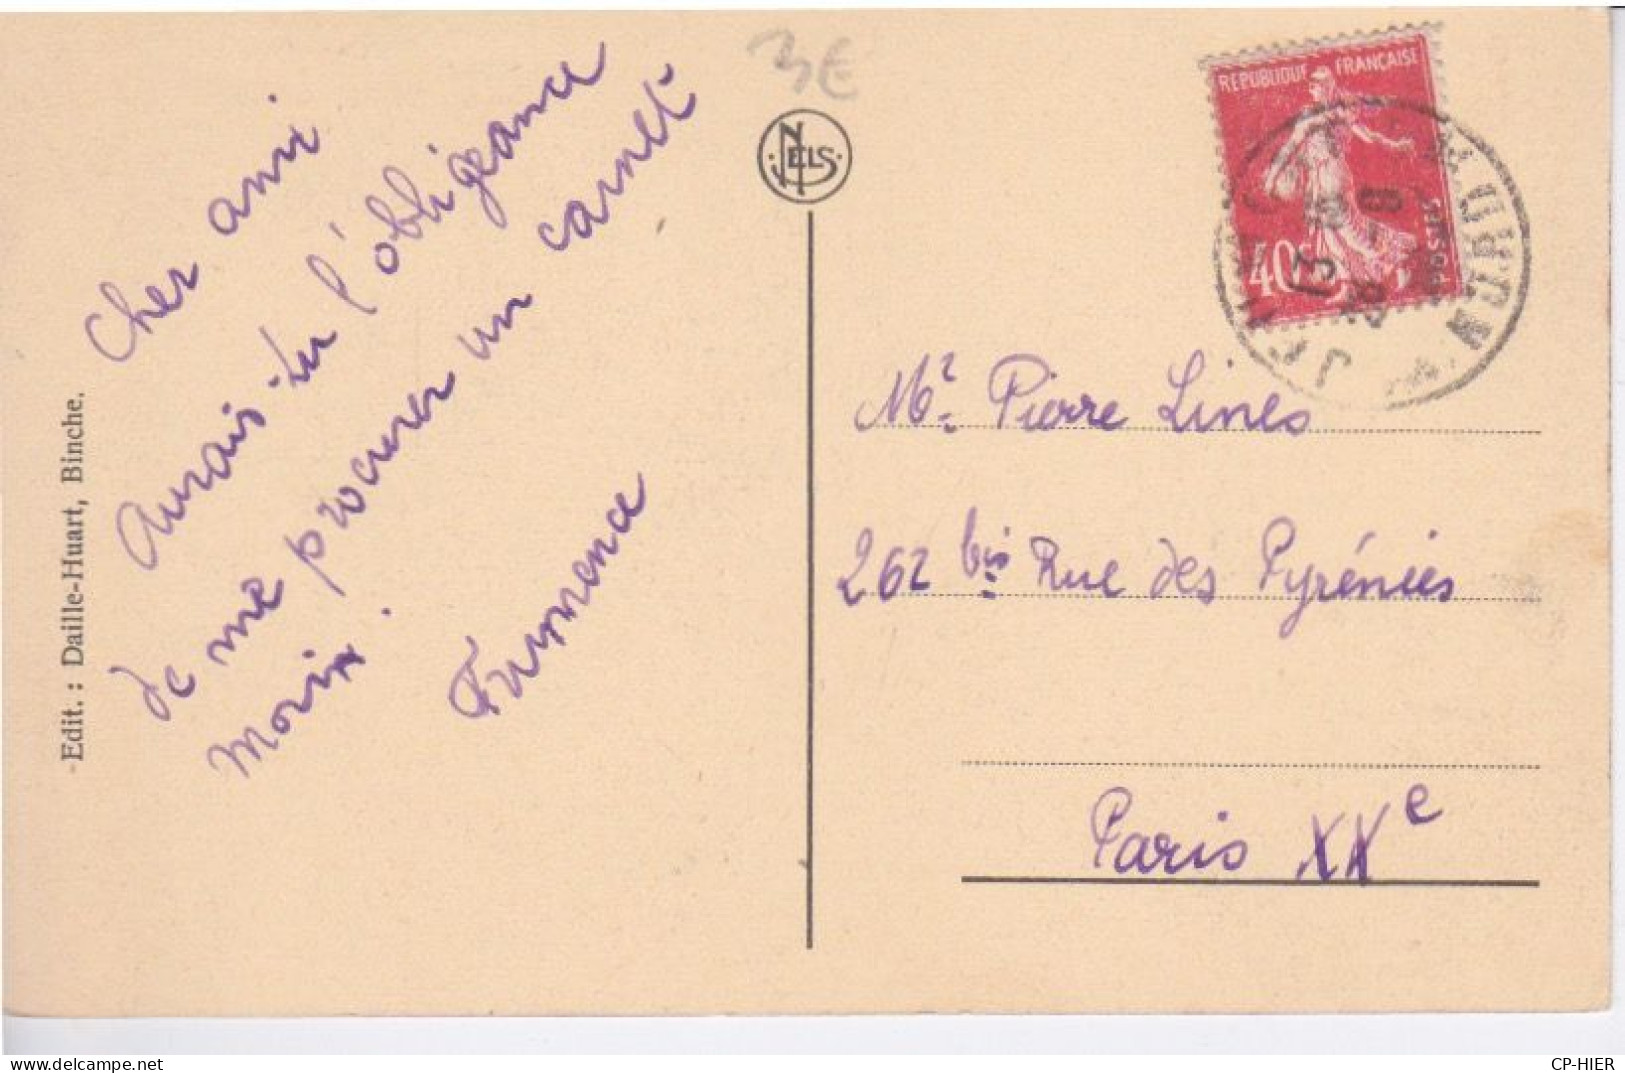 3€
NELS
Edit. : Daille-Huart, Binche.
Cher ami
Aurais-tu l'obligeance
de me procurer un carnet
Morix.
RÉPUBLIQUE FRANÇAISE
40c
13
Mr. Pierre Lines
262 bis Rue des Pyrénées
Paris XXe
www.delcampe.net
CP-HIER